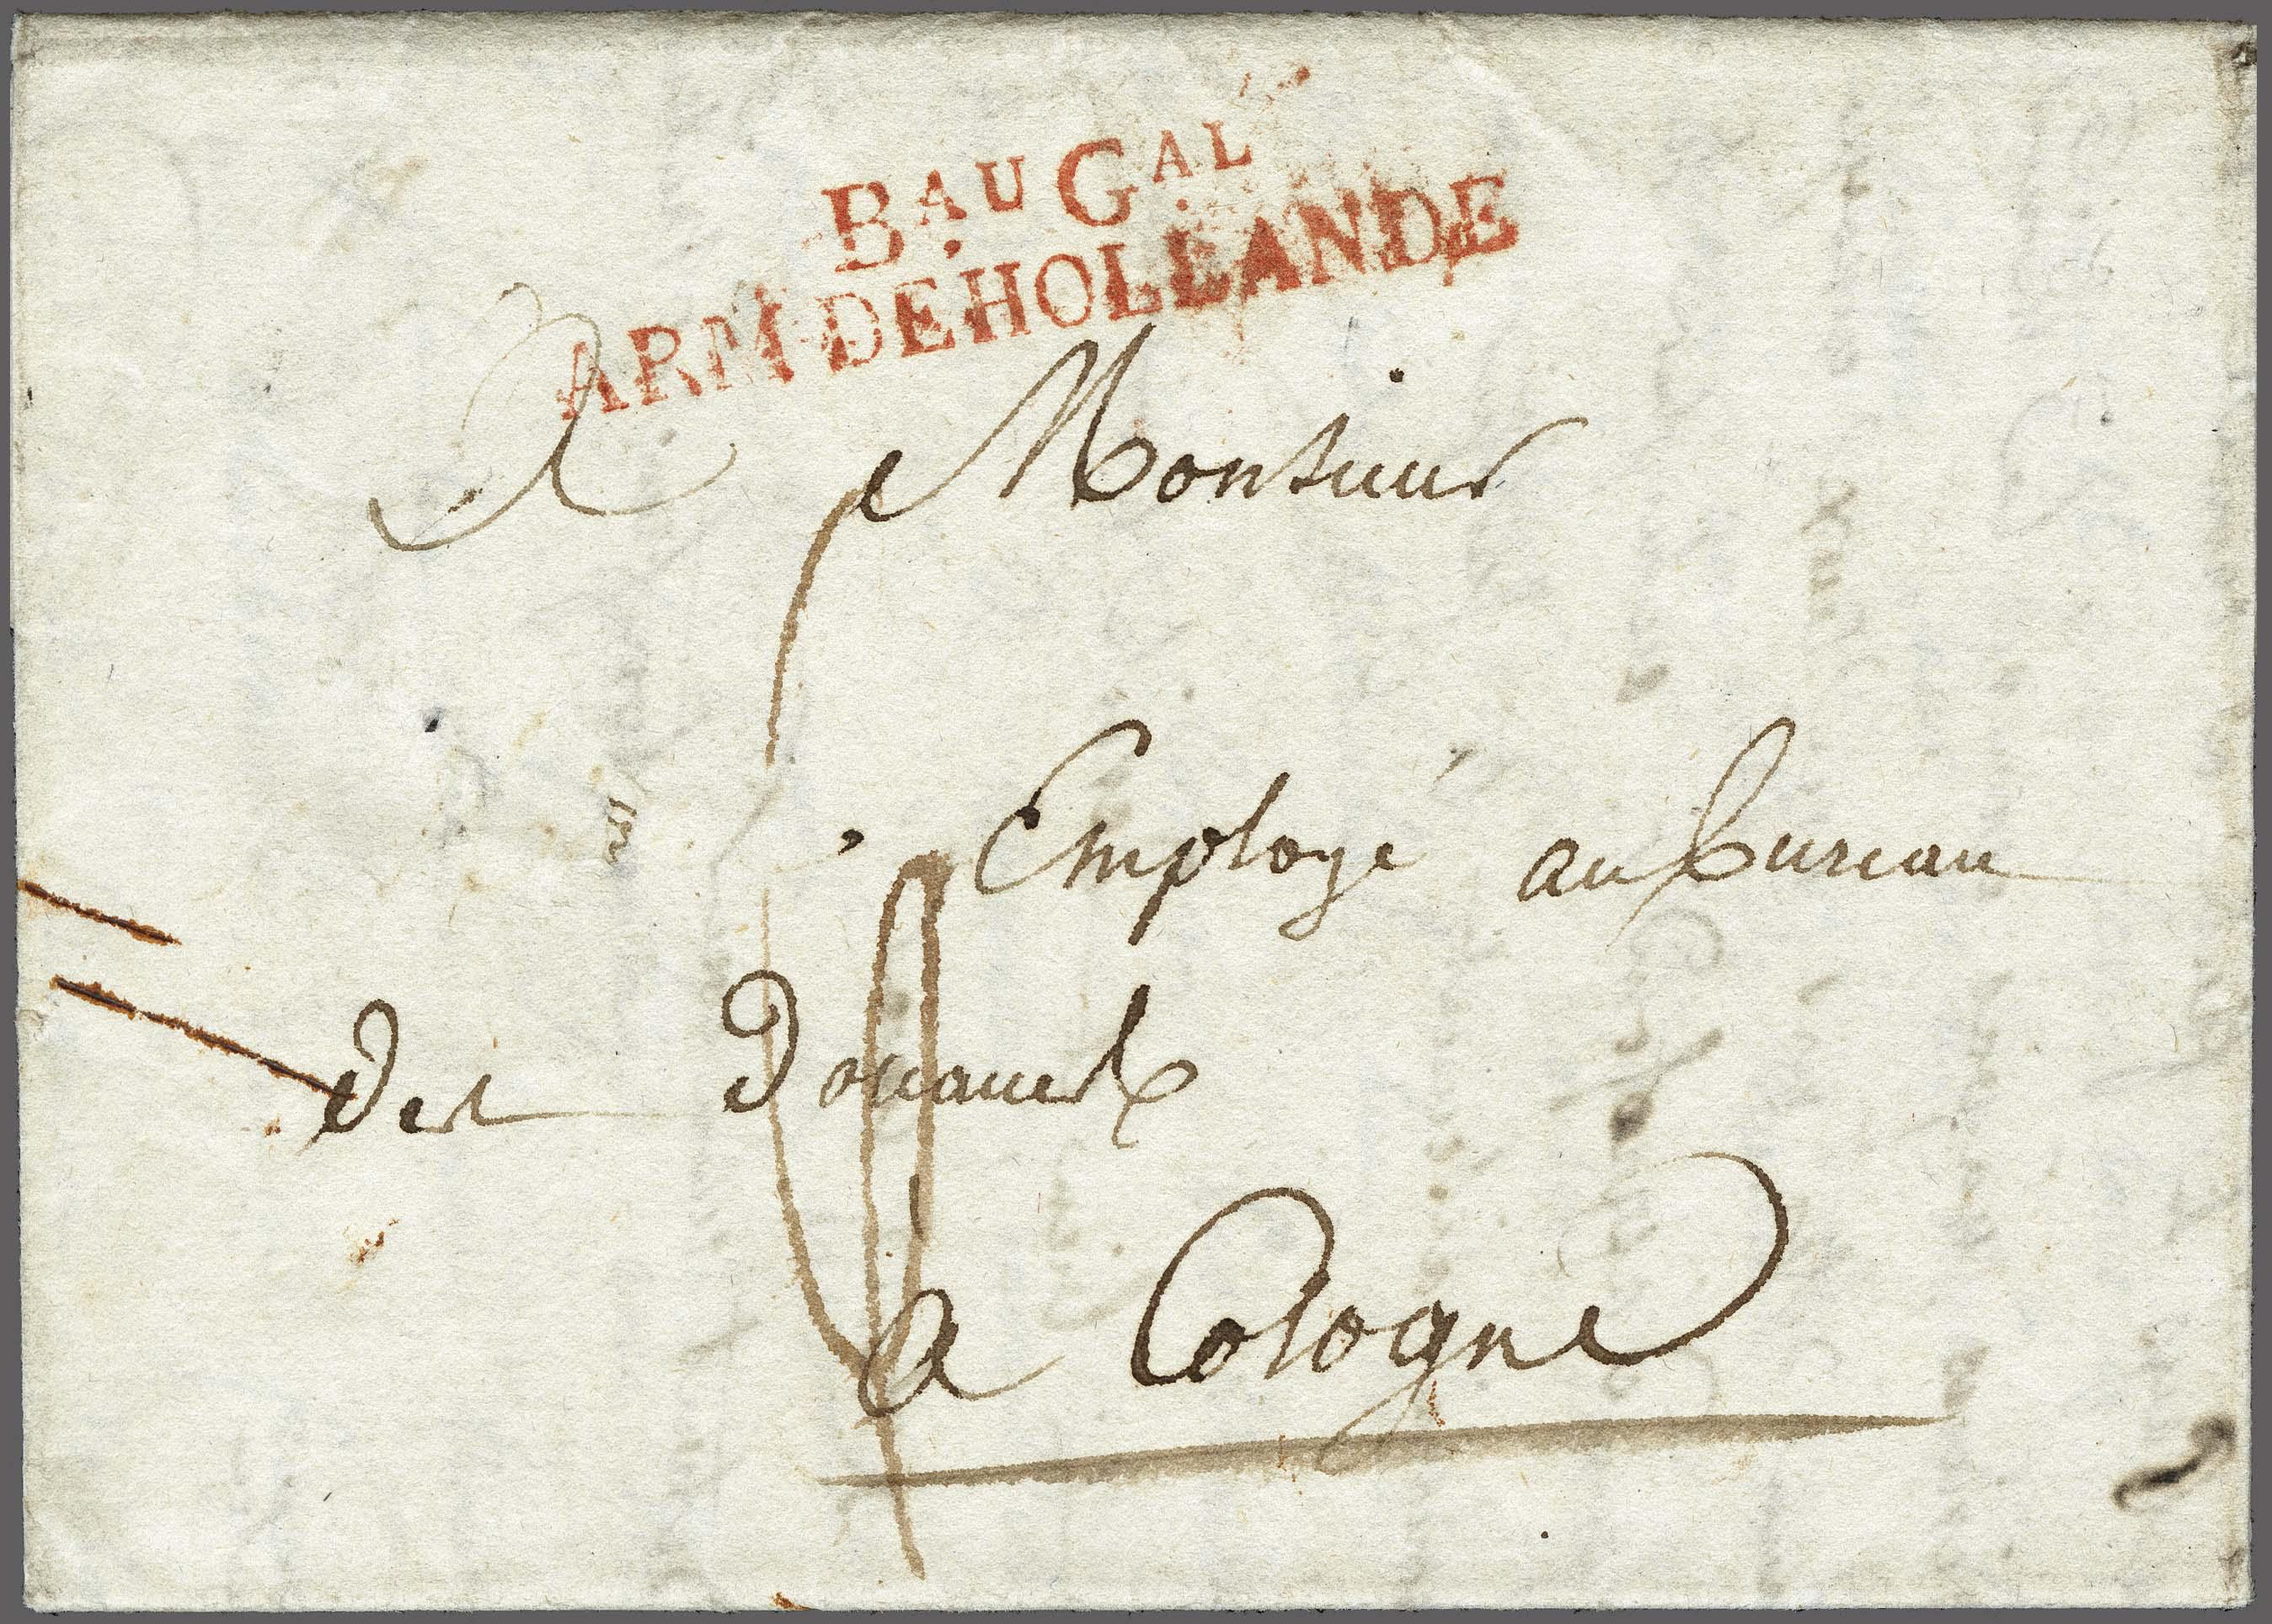 BAU GAL
ARM DE HOLLANDE
A Monsieur
Employé au bureau
des douanes
à Cologne